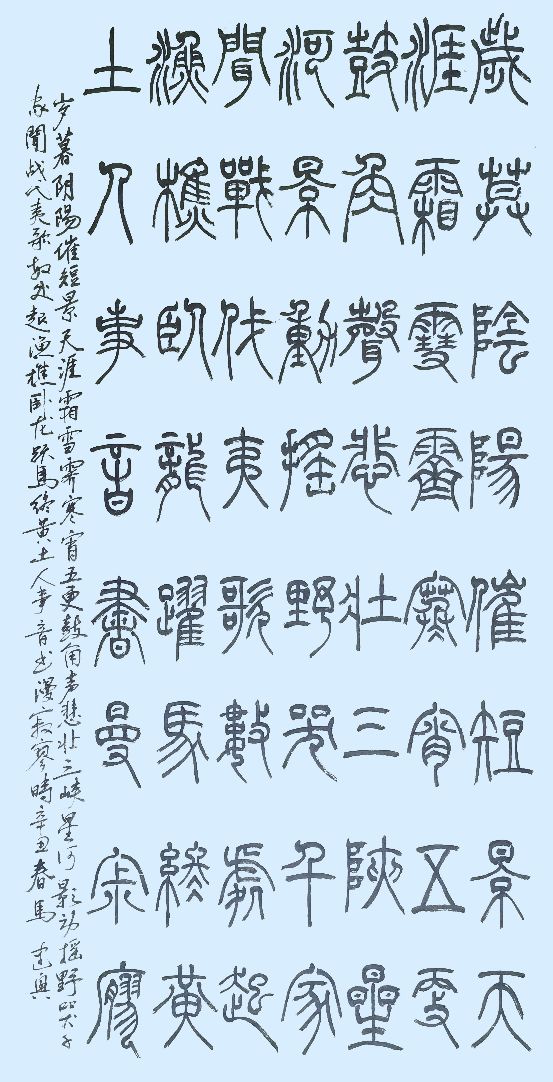 歲莫陰陽催短景天
涯霜雪霽寒宵五更
鼓角聲悲壯三陝星
河景動搖野哭千家
聞戰伐夷歌數處起
漁樵臥龍躍馬終黃
土人事音書曼寂廖
岁暮阴陽催短景天涯霜雪霁寒宵五更鼓角声悲壮三峡星河影动摇野哭千
家聞战伐夷歌数处起渔樵卧龙跃马终黄土人事音书漫寂寥時辛丑春馬建興